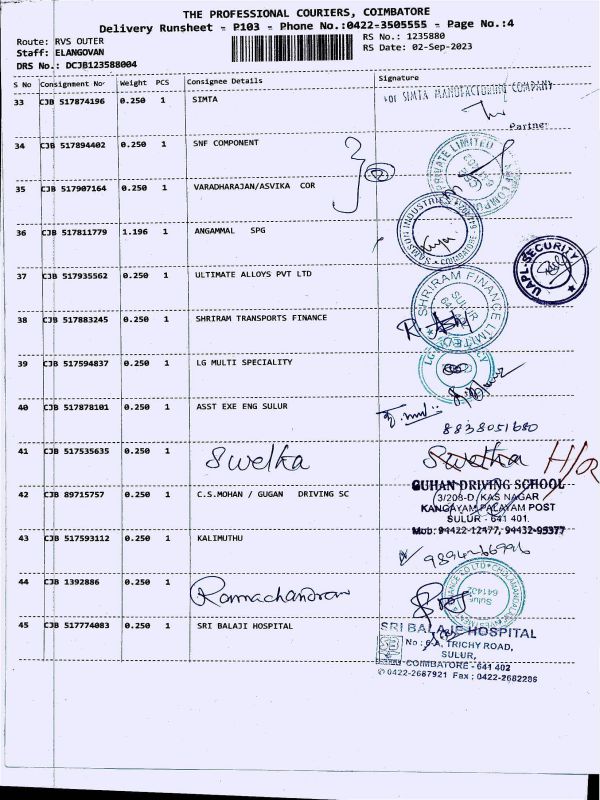 THE PROFESSIONAL COURIERS, COIMBATORE
Delivery Runsheet - P103 - Phone No.:0422-3505555 - Page No.:4
Route: RVS OUTER
Staff: ELANGOVAN
DRS No.: DCJB123588004
RS No.: 1235880
RS Date: 02-Sep-2023
S No Consignment No Weight PCS Consignee Details Signature
33 CJB 517874196 0.250 1 SIMTA
For SIMTA MANUFACTURING COMPANY
Partner
34 CJB 517894402 0.250 1 SNF COMPONENT
PRIVATE LIMITED
35 CJB 517907164 0.250 1 VARADHARAJAN/ASVIKA COR
36 CJB 517811779 1.196 1 ANGAMMAL SPG
SAMSON INDUSTRIES
UAPL-SECURITY
37 CJB 517935562 0.250 1 ULTIMATE ALLOYS PVT LTD
SHRIRAM FINANCE LIMITED
SULUR
38 CJB 517883245 0.250 1 SHRIRAM TRANSPORTS FINANCE
39 CJB 517594837 0.250 1 LG MULTI SPECIALITY
40 CJB 517878101 0.250 1 ASST EXE ENG SULUR
8838051680
41 CJB 517535635 0.250 1 Swetka Swetka H/O
42 CJB 89715757 0.250 1 C.S.MOHAN / GUGAN DRIVING SC
GUHAN DRIVING SCHOOL
3/208-D, KAS NAGAR
KANGAYAM PALAYAM POST
SULUR - 641 401.
Mob: 94422-12477, 94432-95377
43 CJB 517593112 0.250 1 KALIMUTHU
44 CJB 1392886 0.250 1 Ramachandran
45 CJB 517774083 0.250 1 SRI BALAJI HOSPITAL
SRI BALAJI HOSPITAL
No : 6 A, TRICHY ROAD,
SULUR,
COIMBATORE - 641 402
0422-2687921 Fax : 0422-2682286